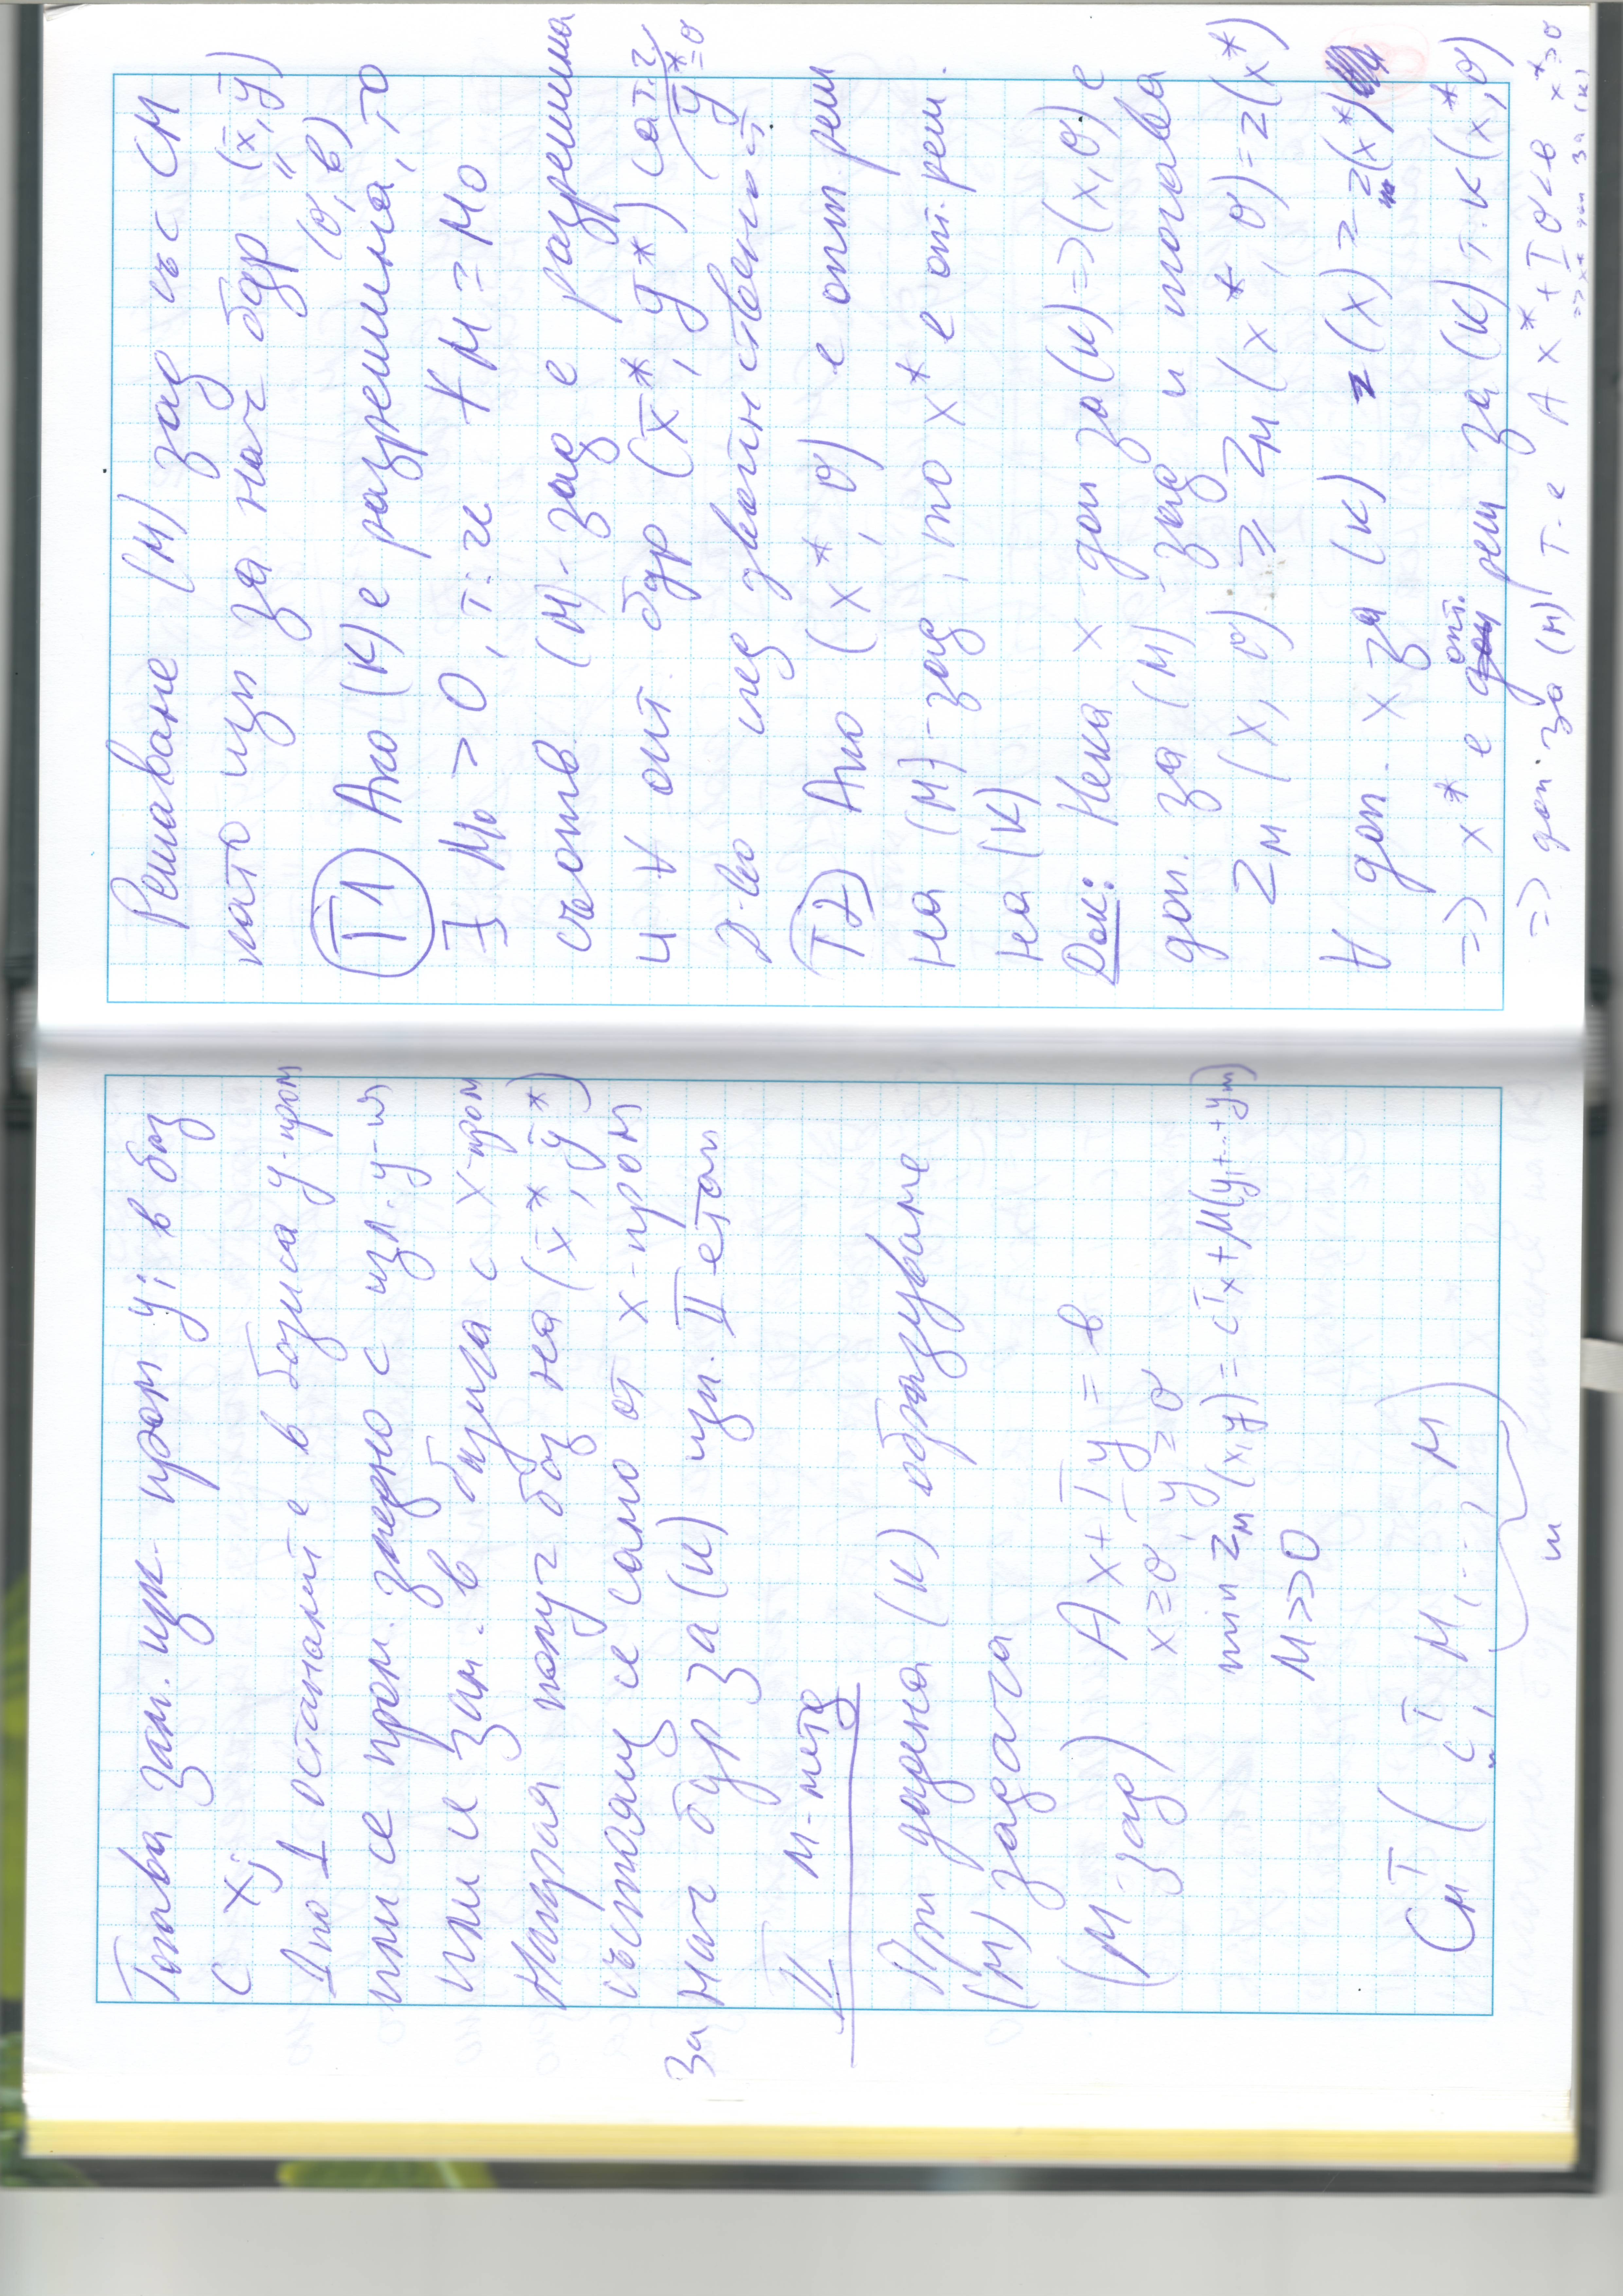 Тогава зам. цик. пром y_i в баз
с x_j
Ако 1 останат е в базиса y-пром
или се прем. заедно с изл. y-и
или се зам. в базиса с x-пром
Накрая получ баз на (x̄*, ȳ*)
състоящ се само от x-пром
За нач бдр за (К) изп. II етап
II М-метод
При дадена (К) образуваме
(М) задача
(М-зад) Ax + Iy = b
x ≥ 0, y ≥ 0
min z_M (x,y) = c^T x + M(y_1+...+y_m)
M >> 0
C_M^T (c^T, M, ..., M)
m
Решаваме (М) зад със СМ
като изп за нач бдр (x̄, ȳ)
" (0, b)
T1 Ако (К) е разрешима, то
∃ M_0 > 0, т.ч. ∀ M ≥ M_0
съотв. (М)-зад е разрешима
и ∀ опт бдр (x̄*, ȳ*) са т.ч.
ȳ* = 0
Д-во след двойственост
T2 Ако (x*, 0) е опт. реш
на (М)-зад, то x* е опт. реш.
на (К)
Док: Нека x доп за (К) => (x, 0) е
доп. за (М) зад и тогава
z_M (x, 0) ≥ z_M (x*, 0) = z(x*)
∀ доп. x за (К) z(x) ≥ z(x*)
=> x* е опт. реш за (К) т.к (x*, 0)
=> доп. за (М) т.е A x* + I 0 = b x* ≥ 0
=> x* доп за (К)